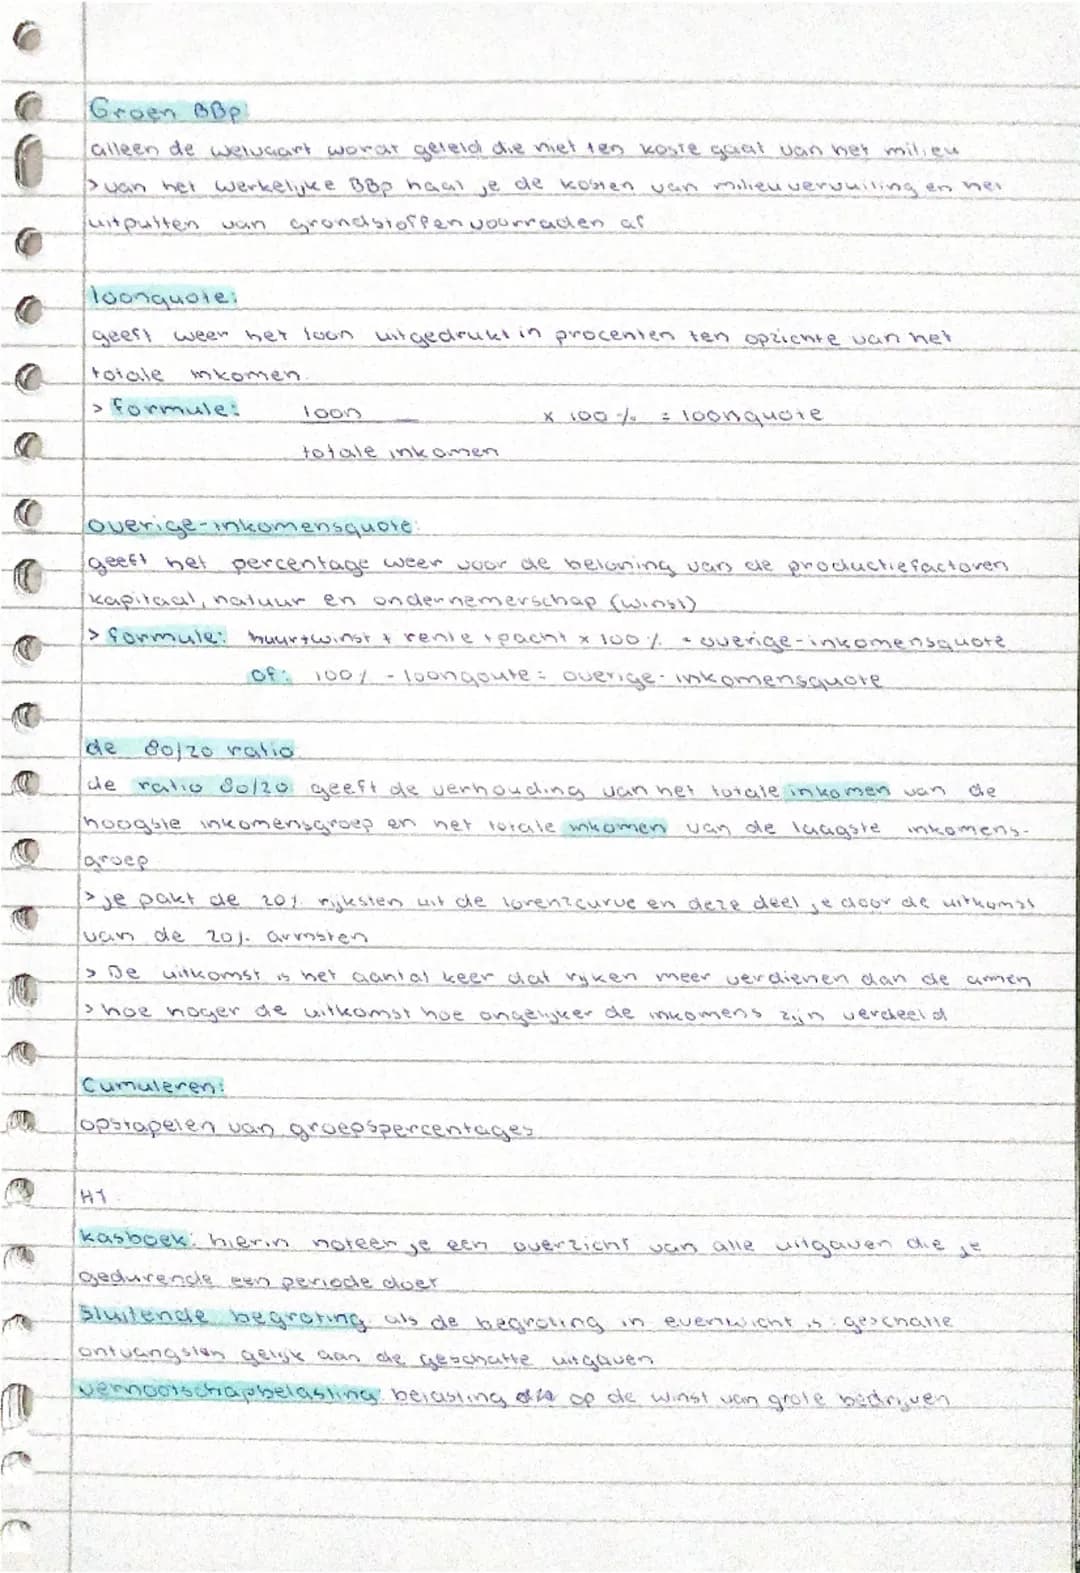 Groen BBp
alleen de welvaart wordt geteld die niet ten koste gaat van het milieu
> van het werkelijke BBp haal je de kosten van milieuvervuiling en het
uitputten van grondstoffenvoorraden af
loonquote:
geeft weer het loon uitgedrukt in procenten ten opzichte van het
totale inkomen.
> formule: loon x 100 % = loonquote
totale inkomen
overige-inkomensquote:
geeft het percentage weer voor de beloning van de productiefactoren
kapitaal, natuur en ondernemerschap (winst)
> formule: huur+winst + rente +pacht x 100 % = overige-inkomensquote
of: 100% - loonqoute = overige-inkomensquote
de 80/20 ratio
de ratio 80/20 geeft de verhouding van het totale inkomen van de
hoogste inkomensgroep en het totale inkomen van de laagste inkomens-
groep
> je pakt de 20% rijksten uit de lorenzcurve en deze deel je door de uitkomst
van de 20% armsten
> De uitkomst is het aantal keer dat rijken meer verdienen dan de armen
> hoe hoger de uitkomst hoe ongelijker de inkomens zijn verdeeld
Cumuleren:
opstapelen van groepspercentages
H1
kasboek: hierin noteer je een overzicht van alle uitgaven die je
gedurende een periode doet
Sluitende begroting als de begroting in evenwicht is: geschatte
ontvangsten gelijk aan de geschatte uitgaven
vennootschapbelasting: belasting op de winst van grote bedrijven